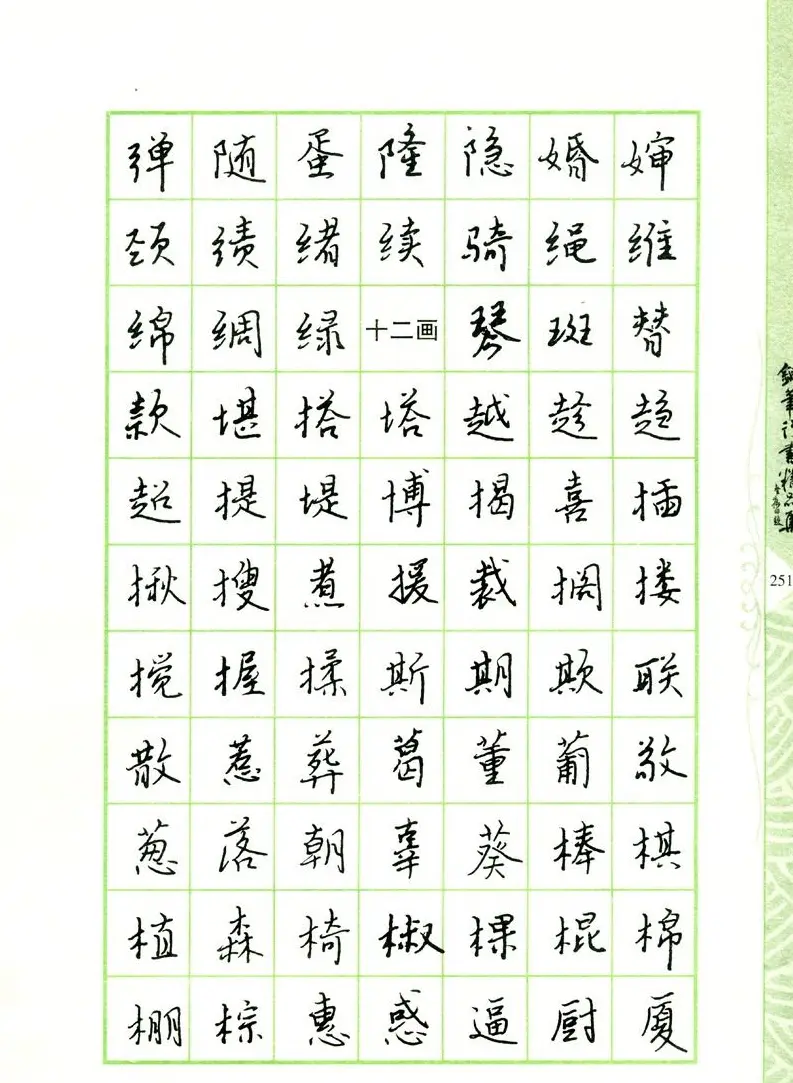 弹 随 蛋 隆 隐 婚 婶
颈 绩 绪 续 骑 绳 维
绵 绸 绿 十二画 琴 斑 替
款 堪 搭 塔 越 趁 趋
超 提 堤 博 揭 喜 插
揪 搜 煮 援 裁 搁 搂
搅 握 揉 斯 期 欺 联
散 惹 葬 葛 董 葡 敬
葱 落 朝 辜 葵 棒 棋
植 森 椅 椒 棵 棍 棉
棚 棕 惠 惑 逼 厨 厦
251